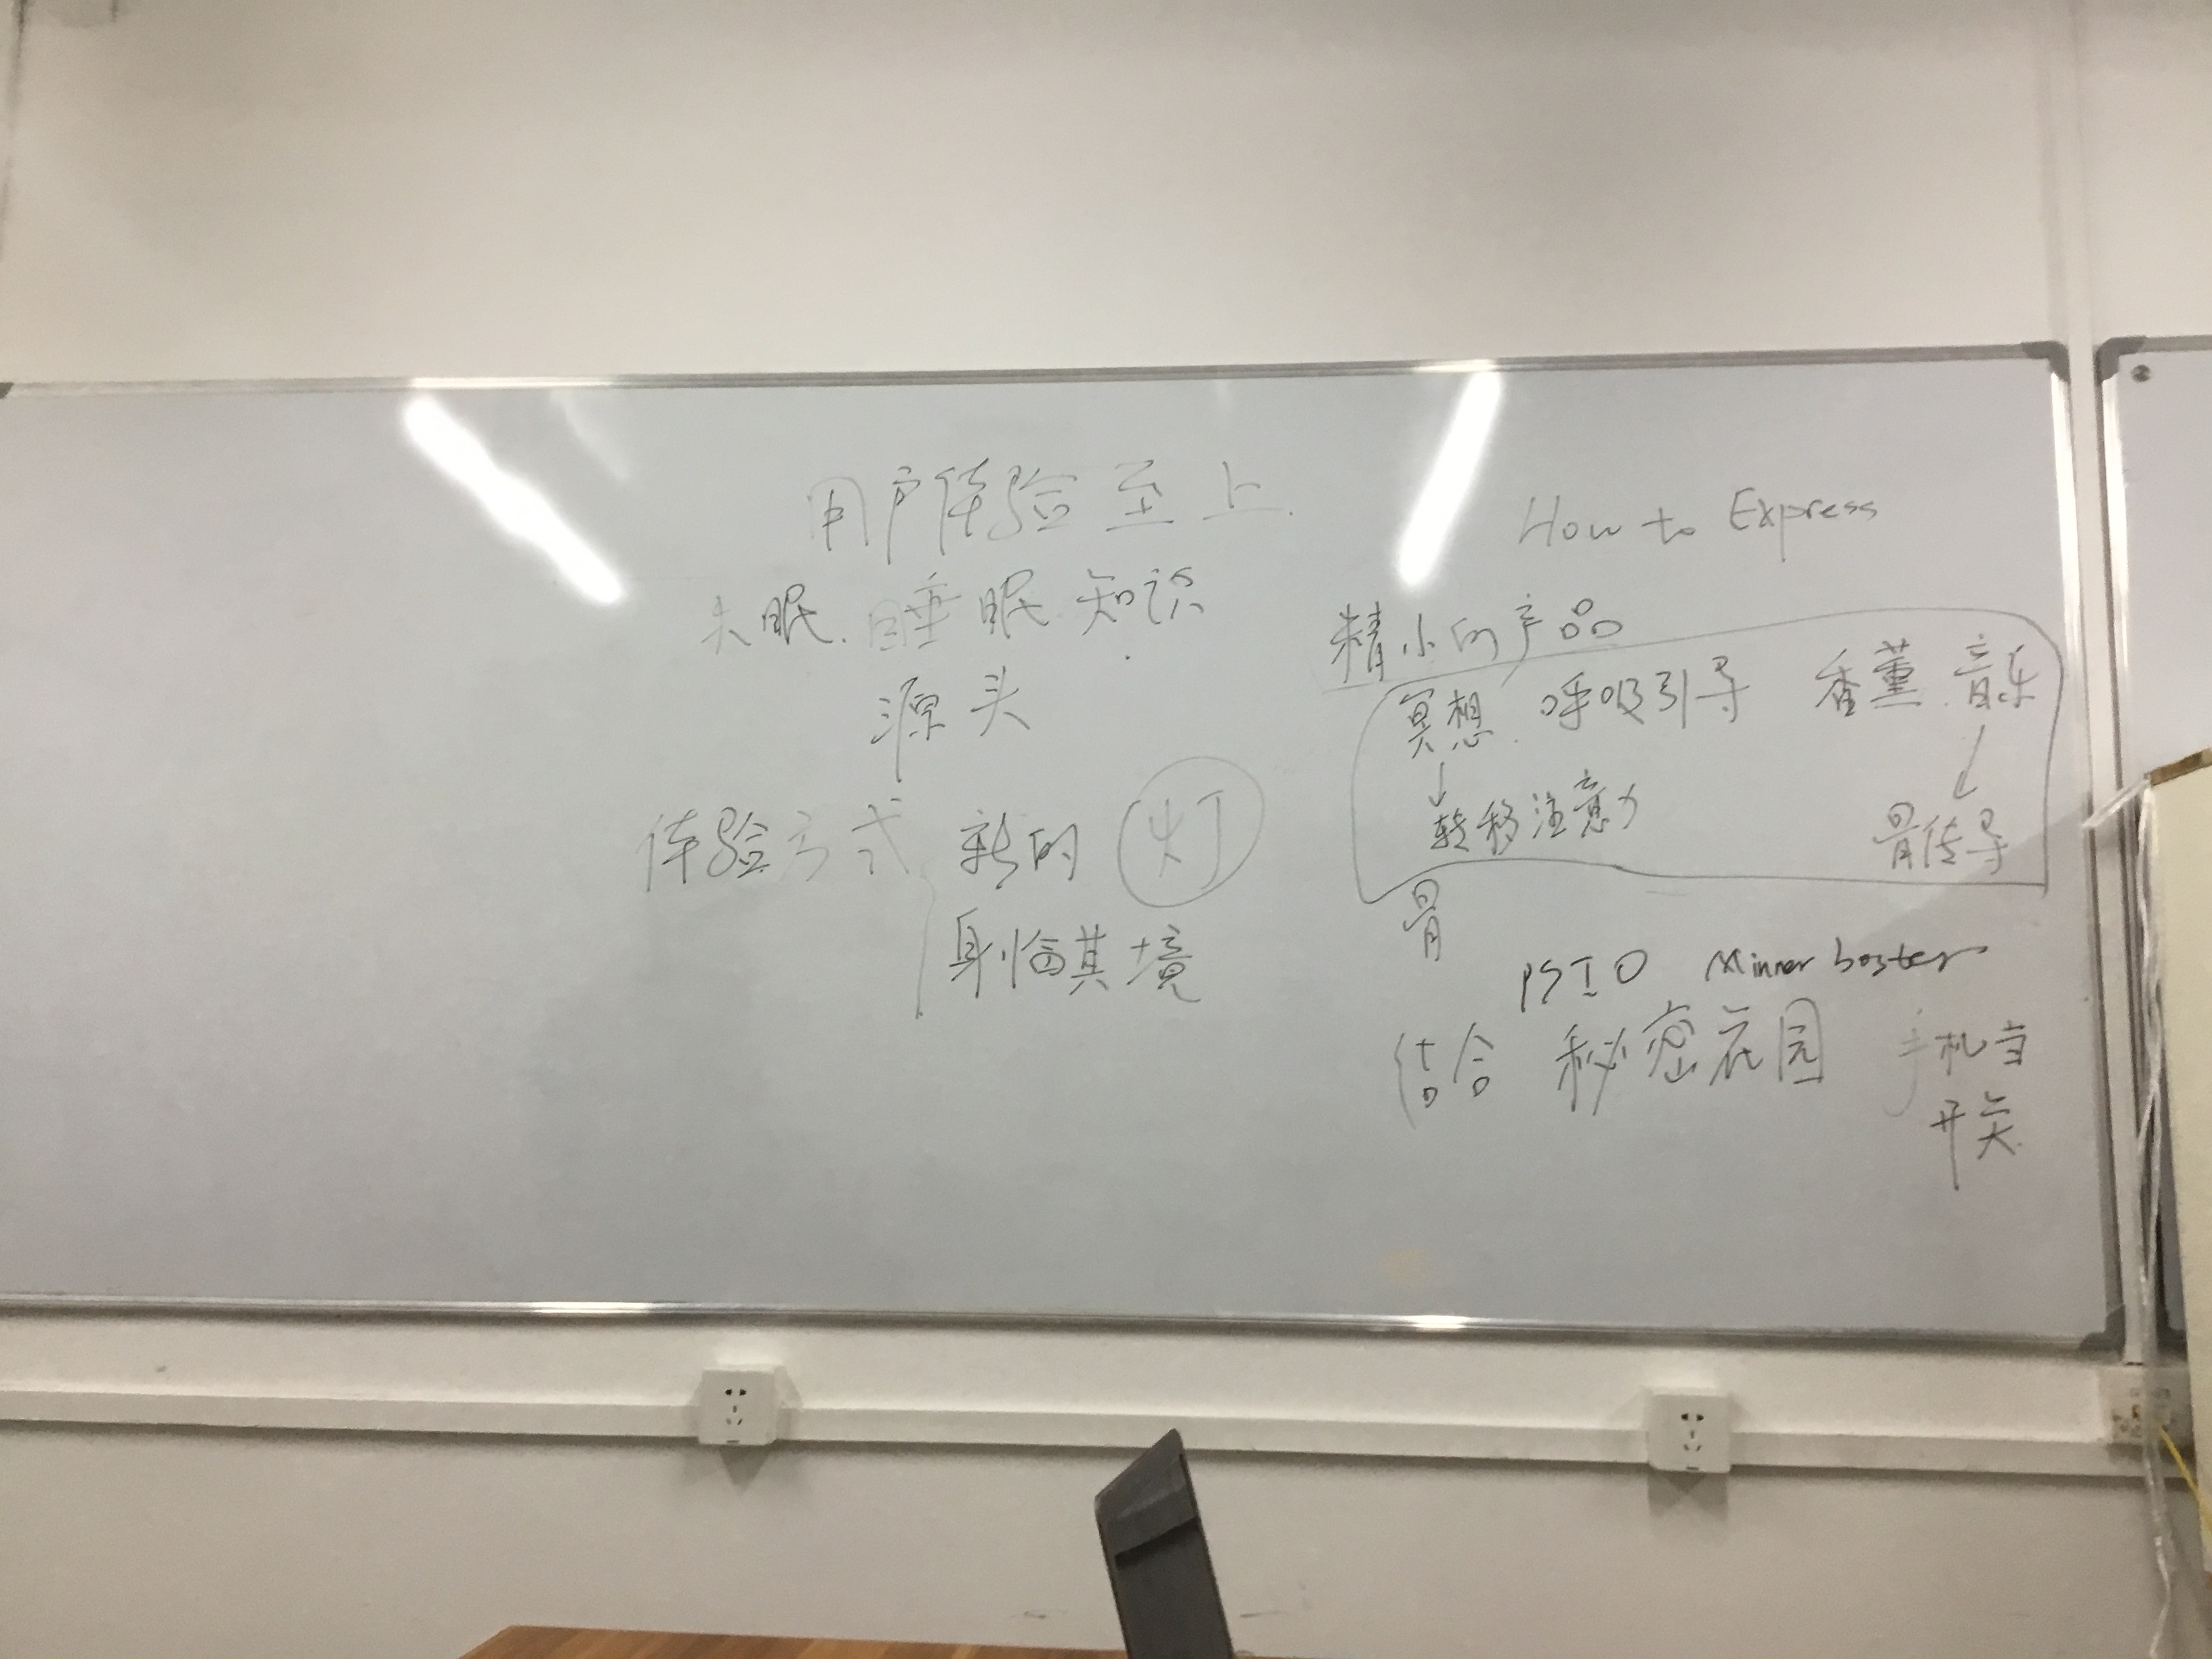 用户体验至上
失眠.睡眠知识
源头
体验方式 新的 灯
身临其境
How to Express
精小的产品
冥想.呼吸引导 香薰.音乐
↓ ↓
转移注意力 骨传导
骨
PSIO
结合 秘密花园 手机当
开关